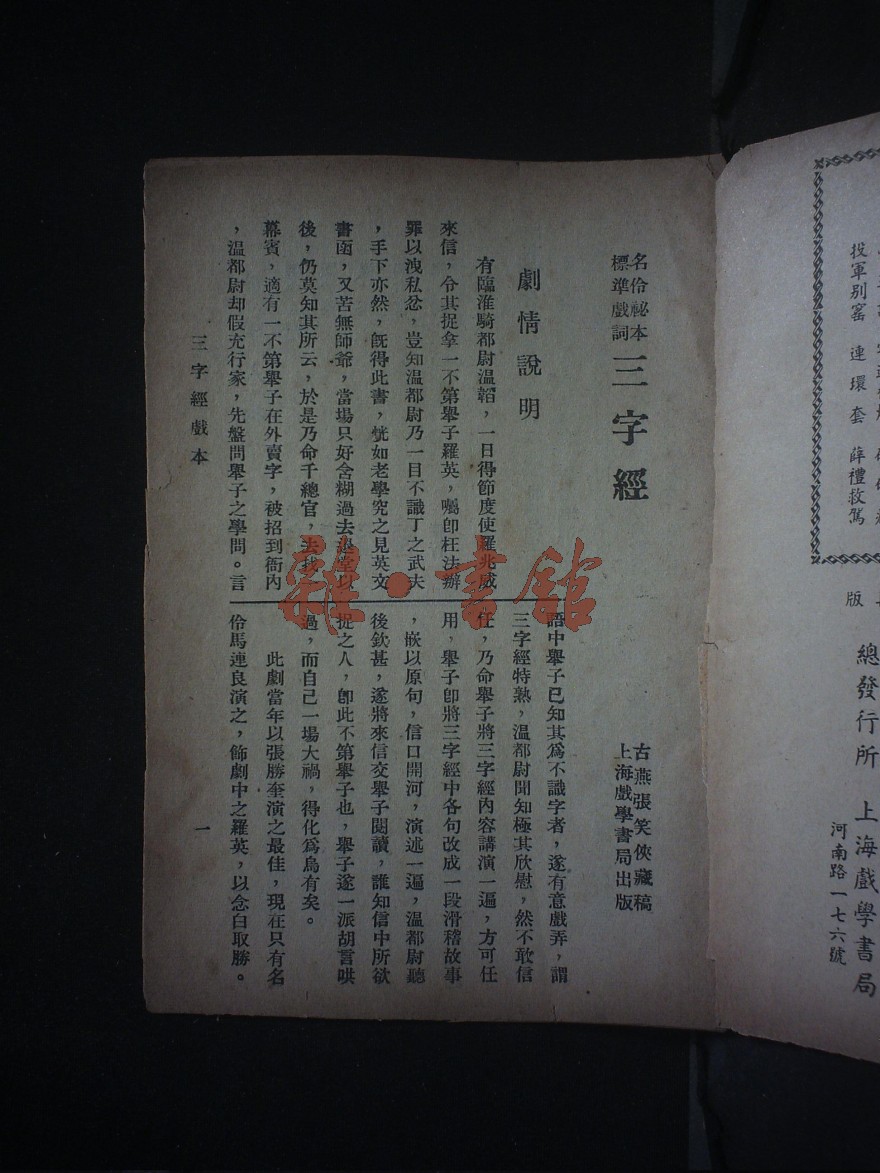 投軍别窰　連環套　薛禮救駕
版
總發行所　上海戲學書局
河南路一七六號
名伶祕本
標準戲詞
三字經
古燕張笑俠藏稿
上海戲學書局出版
劇情說明
有臨淮騎都尉温韜，一日得節度使羅兆威
來信，令其捉拿一不第舉子羅英，囑卽枉法辦
罪以洩私忿，豈知温都尉乃一目不識丁之武夫
，手下亦然，旣得此書，恍如老學究之見英文
書函，又苦無師爺，當場只好含糊過去退堂以
後，仍莫知其所云，於是乃命千總官，去找
幕賓，適有一不第舉子在外賣字，被招到衙內
，温都尉却假充行家，先盤問舉子之學問。言
語中舉子已知其爲不識字者，遂有意戲弄，謂
三字經特熟，温都尉聞知極其欣慰，然不敢信
任，乃命舉子將三字經內容講演一遍，方可任
用，舉子卽將三字經中各句改成一段滑稽故事
，嵌以原句，信口開河，演述一遍，温都尉聽
後欽甚，遂將來信交舉子閱讀，誰知信中所欲
捉之人，卽此不第舉子也，舉子遂一派胡言哄
過，而自己一場大禍，得化爲烏有矣。
此劇當年以張勝奎演之最佳，現在只有名
伶馬連良演之，飾劇中之羅英，以念白取勝。
三字經戲本
一
雜·書館